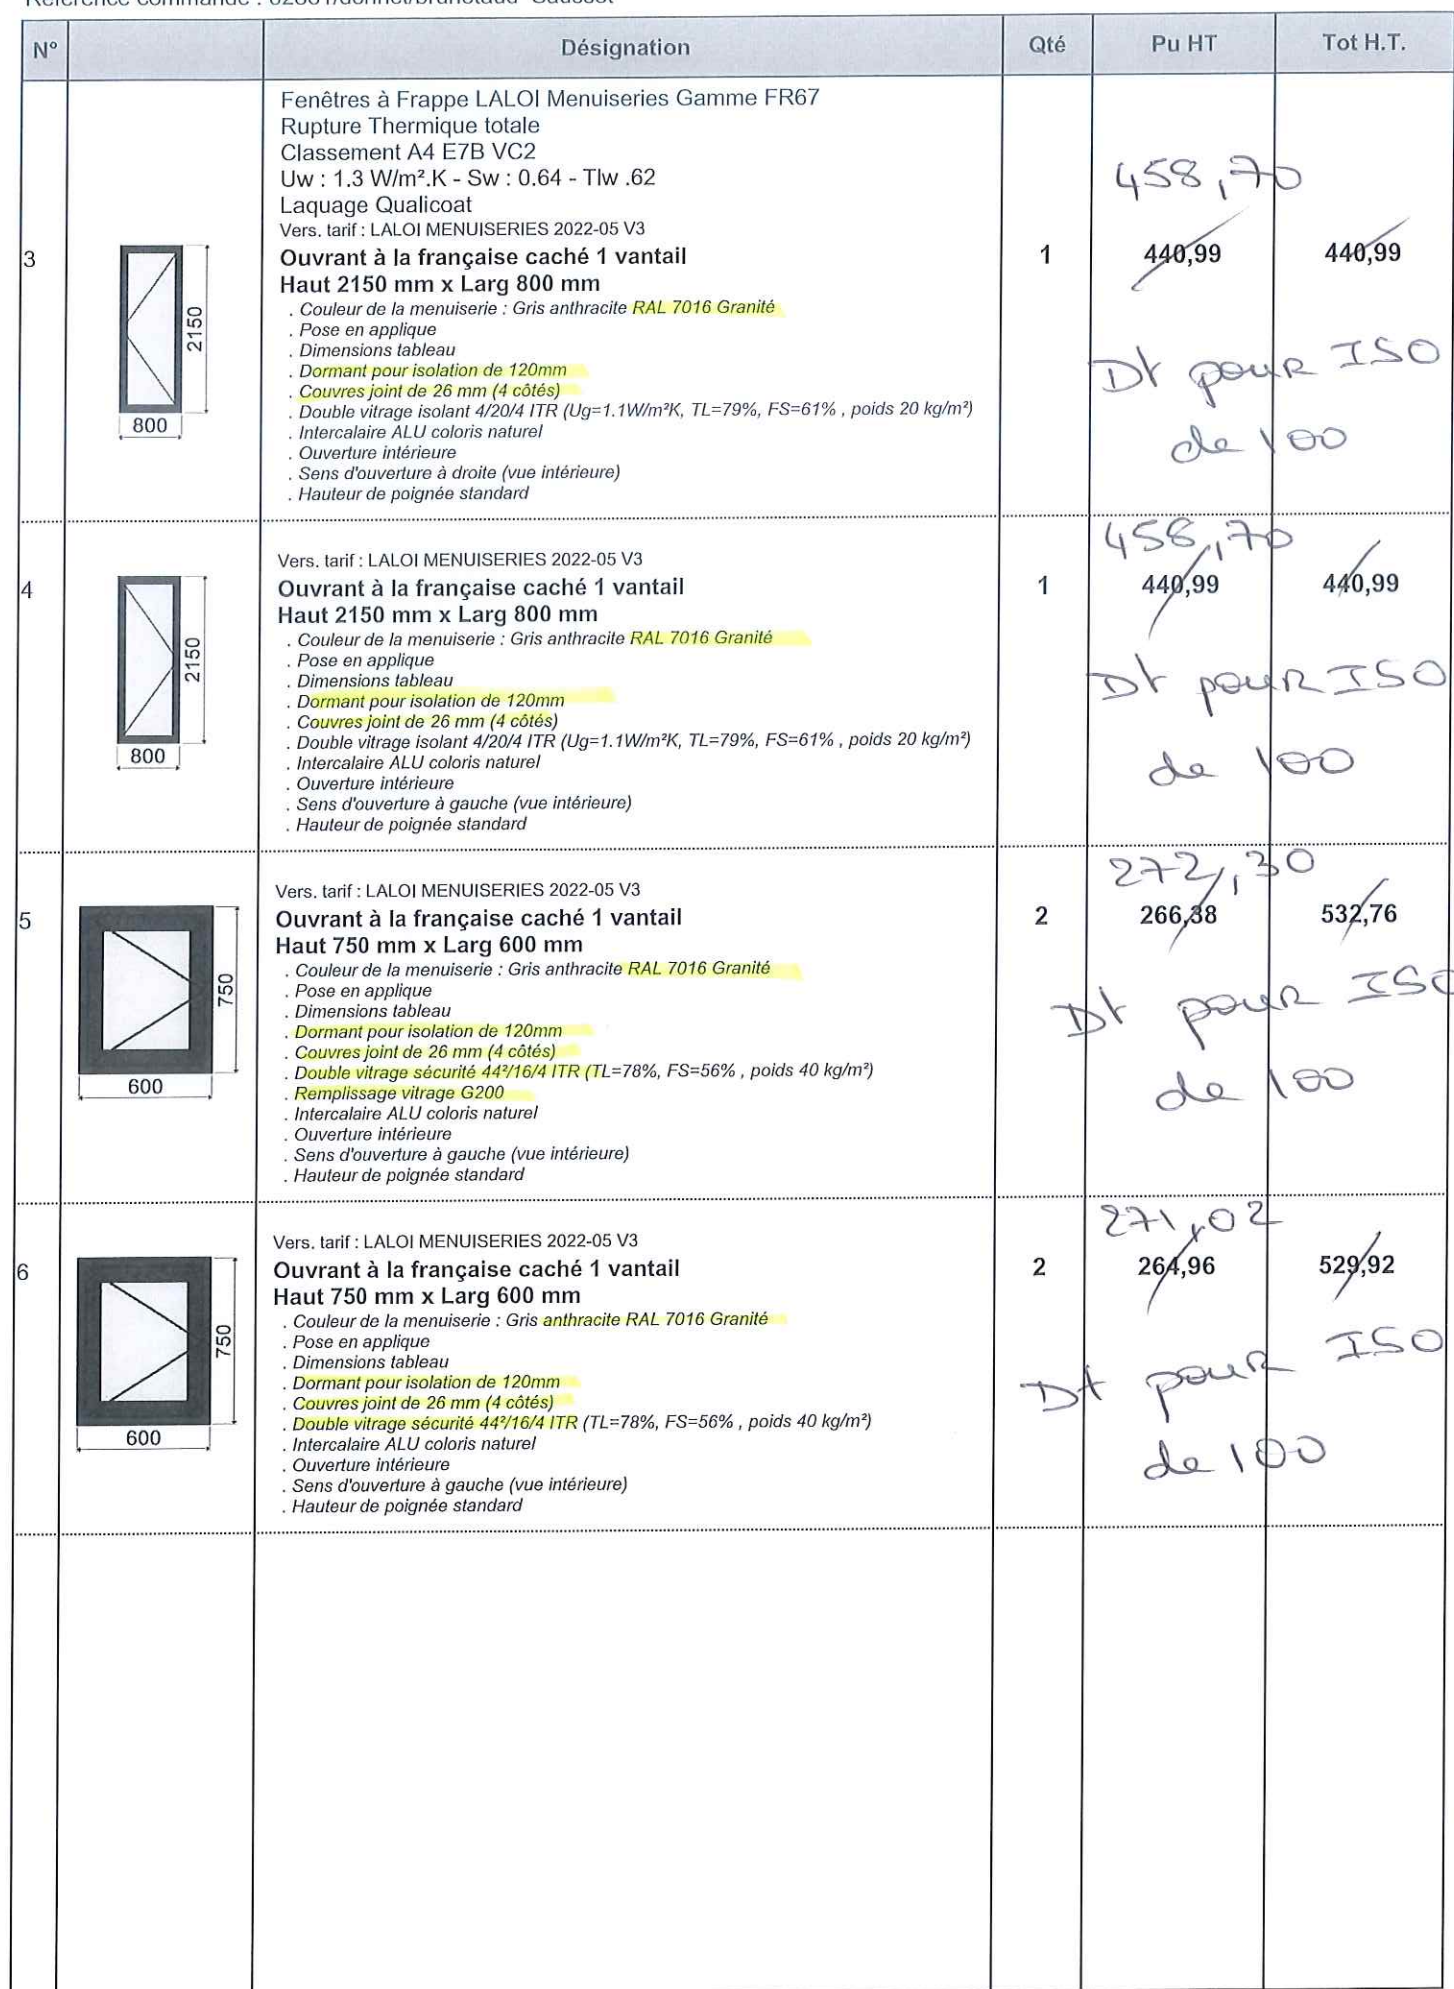 N° Désignation Qté Pu HT Tot H.T.
Fenêtres à Frappe LALOI Menuiseries Gamme FR67
Rupture Thermique totale
Classement A4 E7B VC2
Uw : 1.3 W/m².K - Sw : 0.64 - Tlw .62
Laquage Qualicoat
458,70
Vers. tarif : LALOI MENUISERIES 2022-05 V3
3 Ouvrant à la française caché 1 vantail 1 440,99 440,99
Haut 2150 mm x Larg 800 mm
. Couleur de la menuiserie : Gris anthracite RAL 7016 Granité
. Pose en applique
. Dimensions tableau
. Dormant pour isolation de 120mm
. Couvres joint de 26 mm (4 côtés)
. Double vitrage isolant 4/20/4 ITR (Ug=1.1W/m²K, TL=79%, FS=61% , poids 20 kg/m²)
. Intercalaire ALU coloris naturel
. Ouverture intérieure
. Sens d'ouverture à droite (vue intérieure)
. Hauteur de poignée standard
2150
800
Dt pour ISO
de 100
458,70
Vers. tarif : LALOI MENUISERIES 2022-05 V3
4 Ouvrant à la française caché 1 vantail 1 440,99 440,99
Haut 2150 mm x Larg 800 mm
. Couleur de la menuiserie : Gris anthracite RAL 7016 Granité
. Pose en applique
. Dimensions tableau
. Dormant pour isolation de 120mm
. Couvres joint de 26 mm (4 côtés)
. Double vitrage isolant 4/20/4 ITR (Ug=1.1W/m²K, TL=79%, FS=61% , poids 20 kg/m²)
. Intercalaire ALU coloris naturel
. Ouverture intérieure
. Sens d'ouverture à gauche (vue intérieure)
. Hauteur de poignée standard
2150
800
Dt pour ISO
de 100
272,30
Vers. tarif : LALOI MENUISERIES 2022-05 V3
5 Ouvrant à la française caché 1 vantail 2 266,38 532,76
Haut 750 mm x Larg 600 mm
. Couleur de la menuiserie : Gris anthracite RAL 7016 Granité
. Pose en applique
. Dimensions tableau
. Dormant pour isolation de 120mm
. Couvres joint de 26 mm (4 côtés)
. Double vitrage sécurité 44²/16/4 ITR (TL=78%, FS=56% , poids 40 kg/m²)
. Remplissage vitrage G200
. Intercalaire ALU coloris naturel
. Ouverture intérieure
. Sens d'ouverture à gauche (vue intérieure)
. Hauteur de poignée standard
750
600
Dt pour ISO
de 100
271,02
Vers. tarif : LALOI MENUISERIES 2022-05 V3
6 Ouvrant à la française caché 1 vantail 2 264,96 529,92
Haut 750 mm x Larg 600 mm
. Couleur de la menuiserie : Gris anthracite RAL 7016 Granité
. Pose en applique
. Dimensions tableau
. Dormant pour isolation de 120mm
. Couvres joint de 26 mm (4 côtés)
. Double vitrage sécurité 44²/16/4 ITR (TL=78%, FS=56% , poids 40 kg/m²)
. Intercalaire ALU coloris naturel
. Ouverture intérieure
. Sens d'ouverture à gauche (vue intérieure)
. Hauteur de poignée standard
750
600
Dt pour ISO
de 100